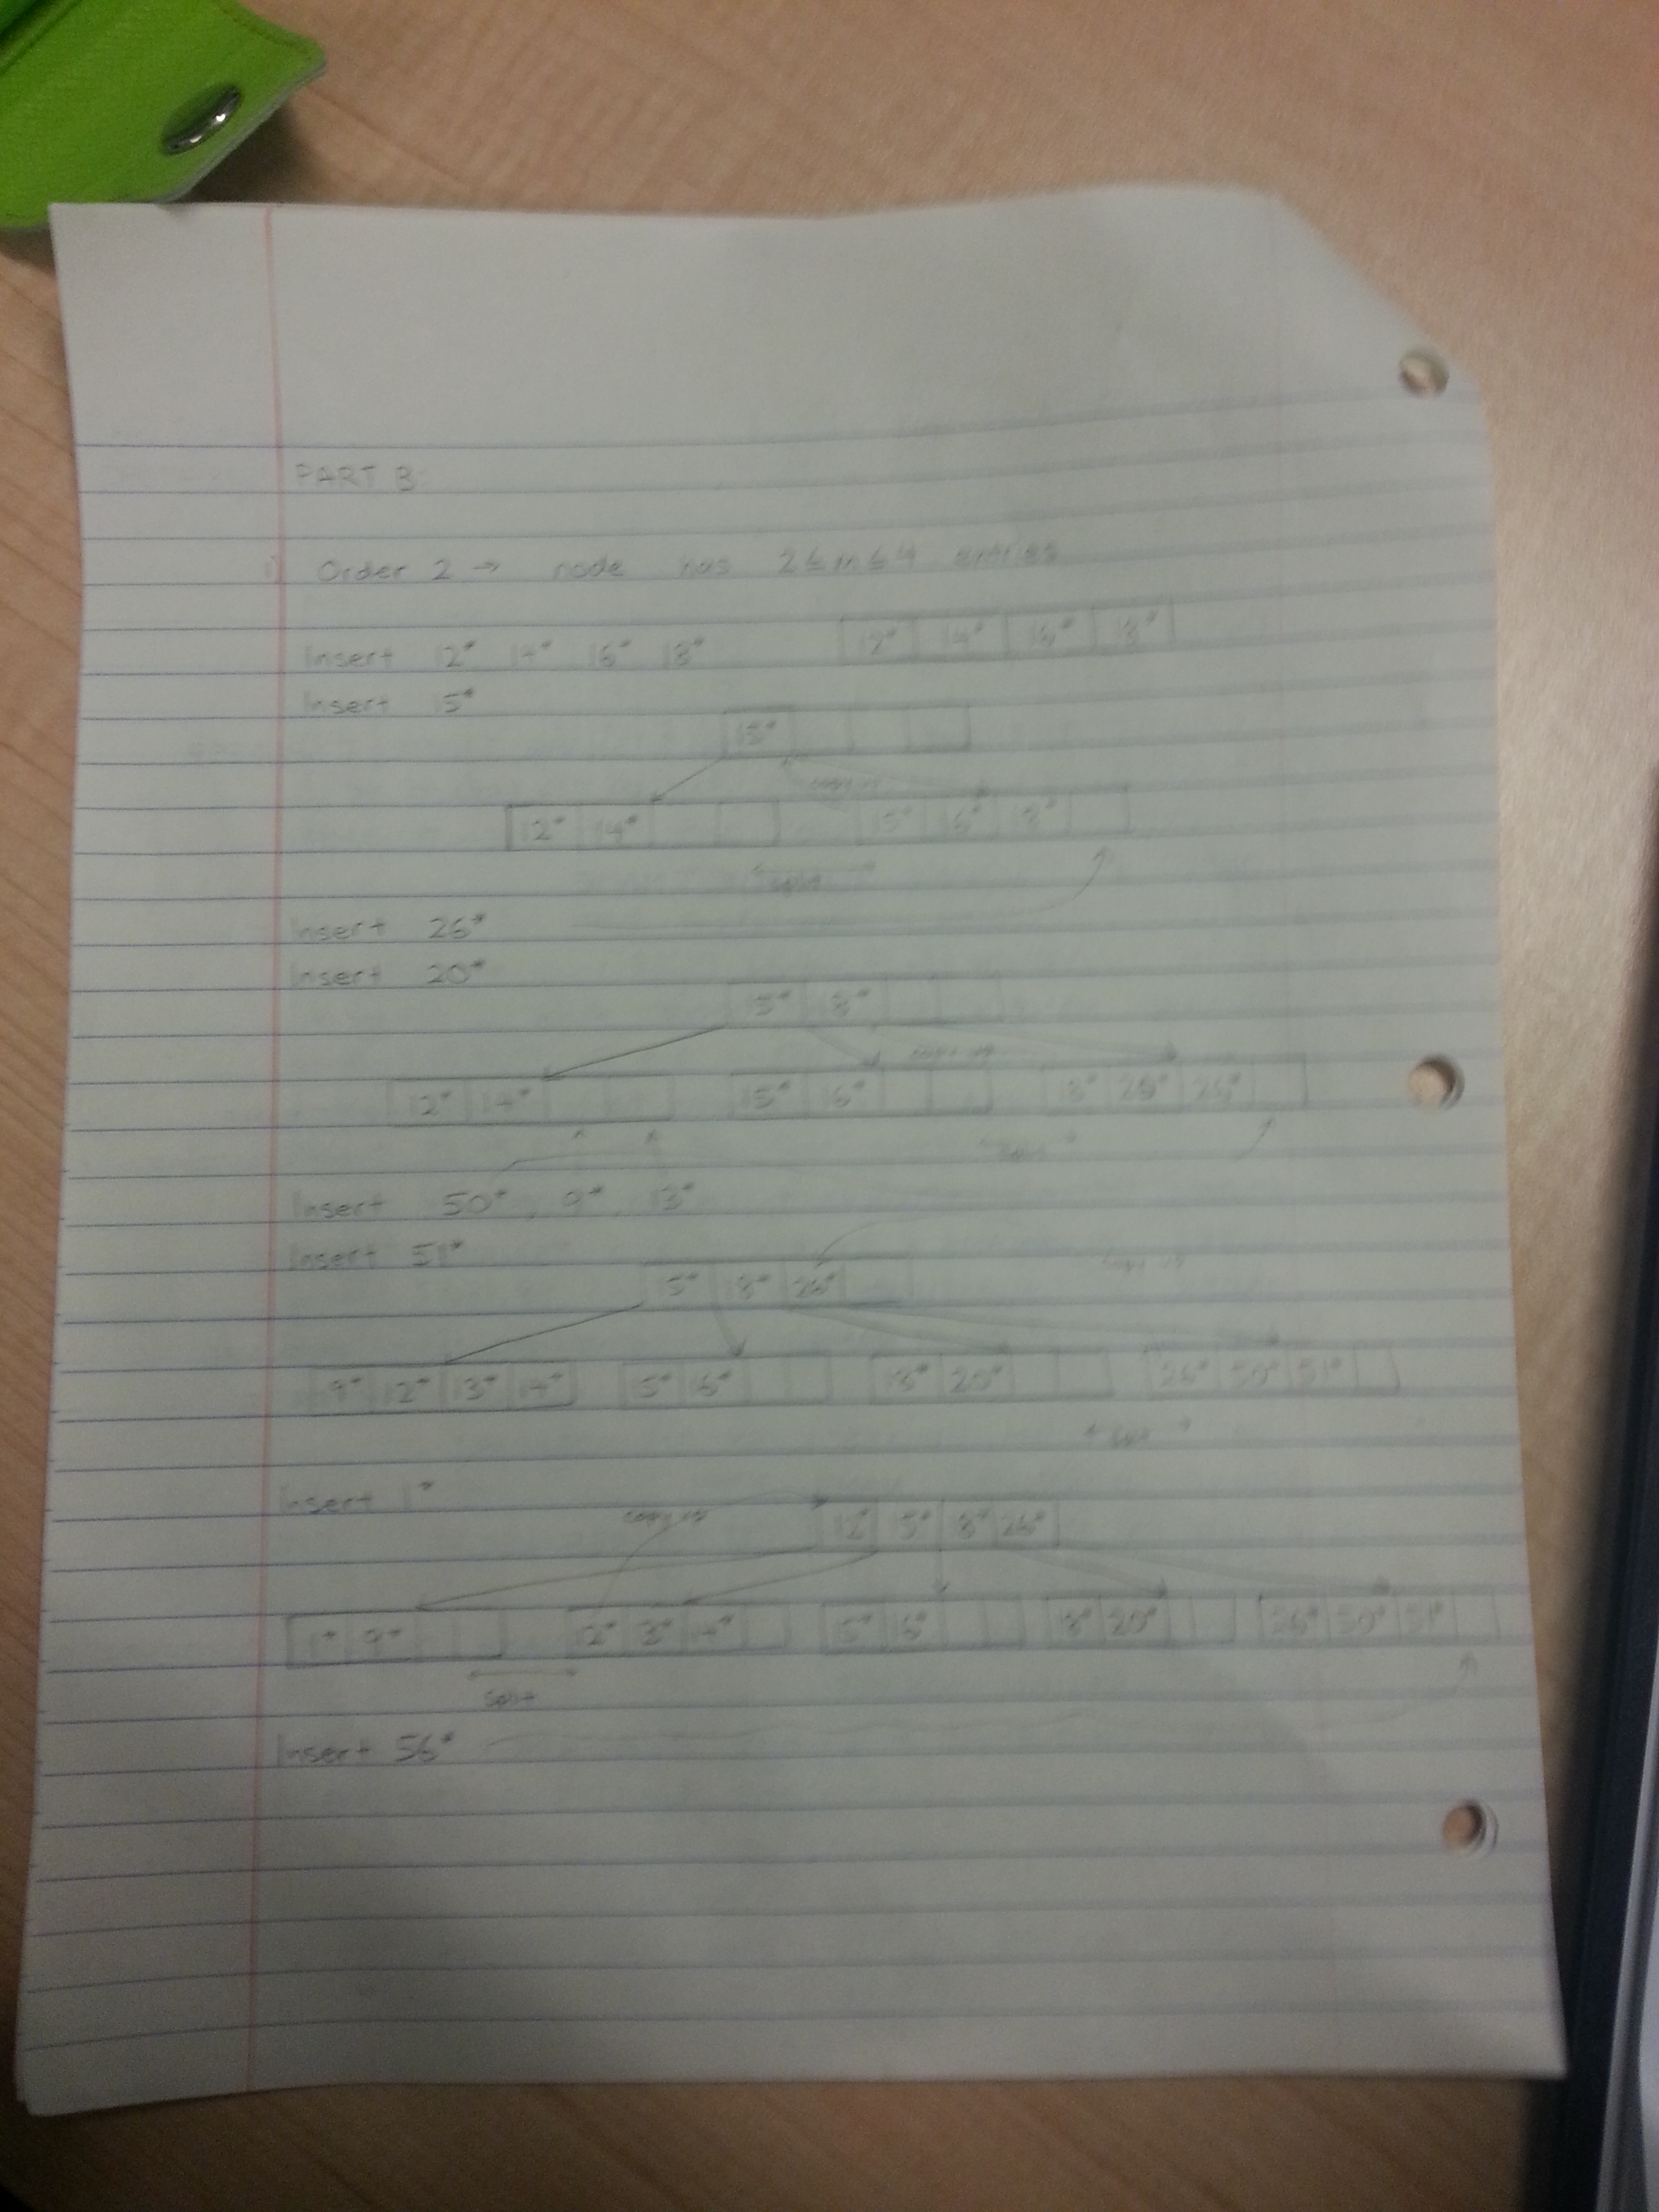 PART B:
i) Order 2 → node has 2 ≤ n ≤ 4 entries
Insert 12* 14* 16* 18* 12* 14* 16* 18*
Insert 15*
15*
copy up
12* 14* 15* 16* 18*
split
Insert 26*
Insert 20*
15* 18*
copy up
12* 14* 15* 16* 18* 20* 26*
split
Insert 50*, 9*, 13*
Insert 51*
copy up
15* 18* 26*
9* 12* 13* 14* 15* 16* 18* 20* 26* 50* 51*
split
Insert 1*
copy up
12* 15* 18* 26*
1* 9* 12* 13* 14* 15* 16* 18* 20* 26* 50* 51*
split
Insert 56*